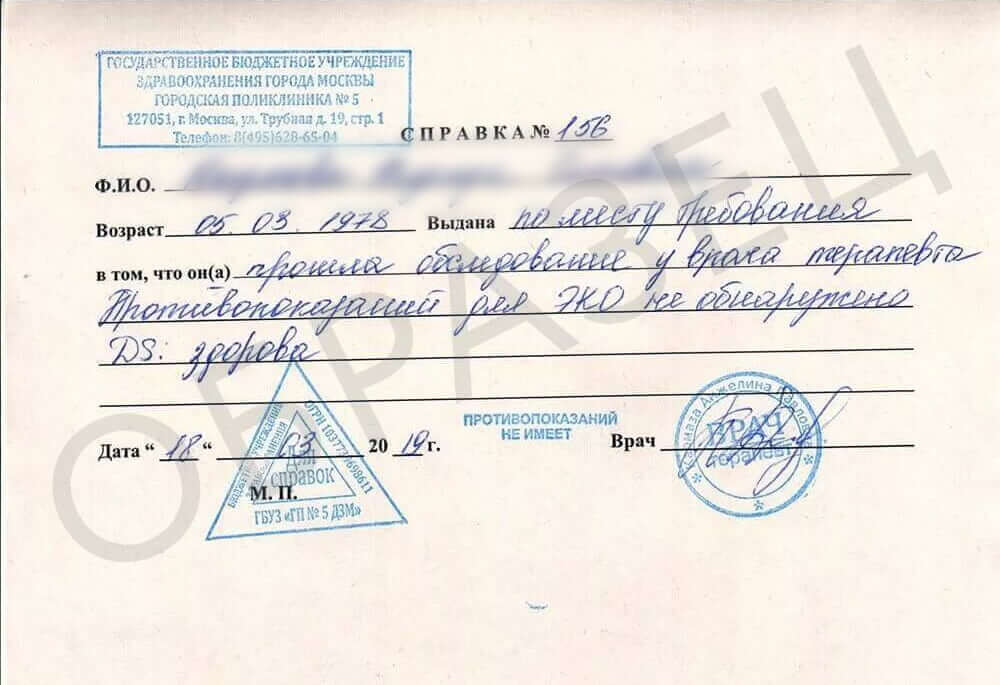 ГОСУДАРСТВЕННОЕ БЮДЖЕТНОЕ УЧРЕЖДЕНИЕ
ЗДРАВООХРАНЕНИЯ ГОРОДА МОСКВЫ
ГОРОДСКАЯ ПОЛИКЛИНИКА № 5
127051, г. Москва, ул. Трубная д. 19, стр. 1
Телефон: 8(495)628-65-04
СПРАВКА № 156
Ф.И.О.
Возраст 05. 03. 1978 Выдана по месту требования
в том, что он(а) прошла обследование у врача терапевта
Противопоказаний для ЭКО не обнаружено
DS: здорова
ОБРАЗЕЦ
ПРОТИВОПОКАЗАНИЙ
НЕ ИМЕЕТ
Дата “ 18 “ 03 2019 г.
Врач
М. П.
БЮДЖЕТНОЕ УЧРЕЖДЕНИЕ
ЗДРАВООХРАНЕНИЯ
ОГРН
для
справок
ГБУЗ «ГП № 5 ДЗМ»
Анжелина Павловна
ВРАЧ
терапевт